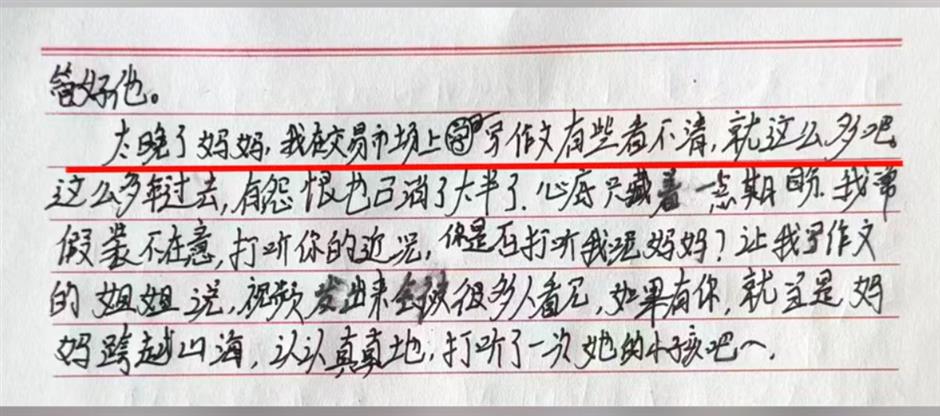 管好他。
太晚了妈妈，我在交易市场上写作文有些看不清，就这么多吧
这么多年过去，有怨恨也已消了大半了．心底只藏着一点期盼．我常
假装不在意，打听你的近况，你是否打听我呢妈妈？让我写作文
的姐姐说，视频发出来会被很多人看见，如果有你，就当是妈
妈跨越山海，认认真真地，打听了一次她的小孩吧～．